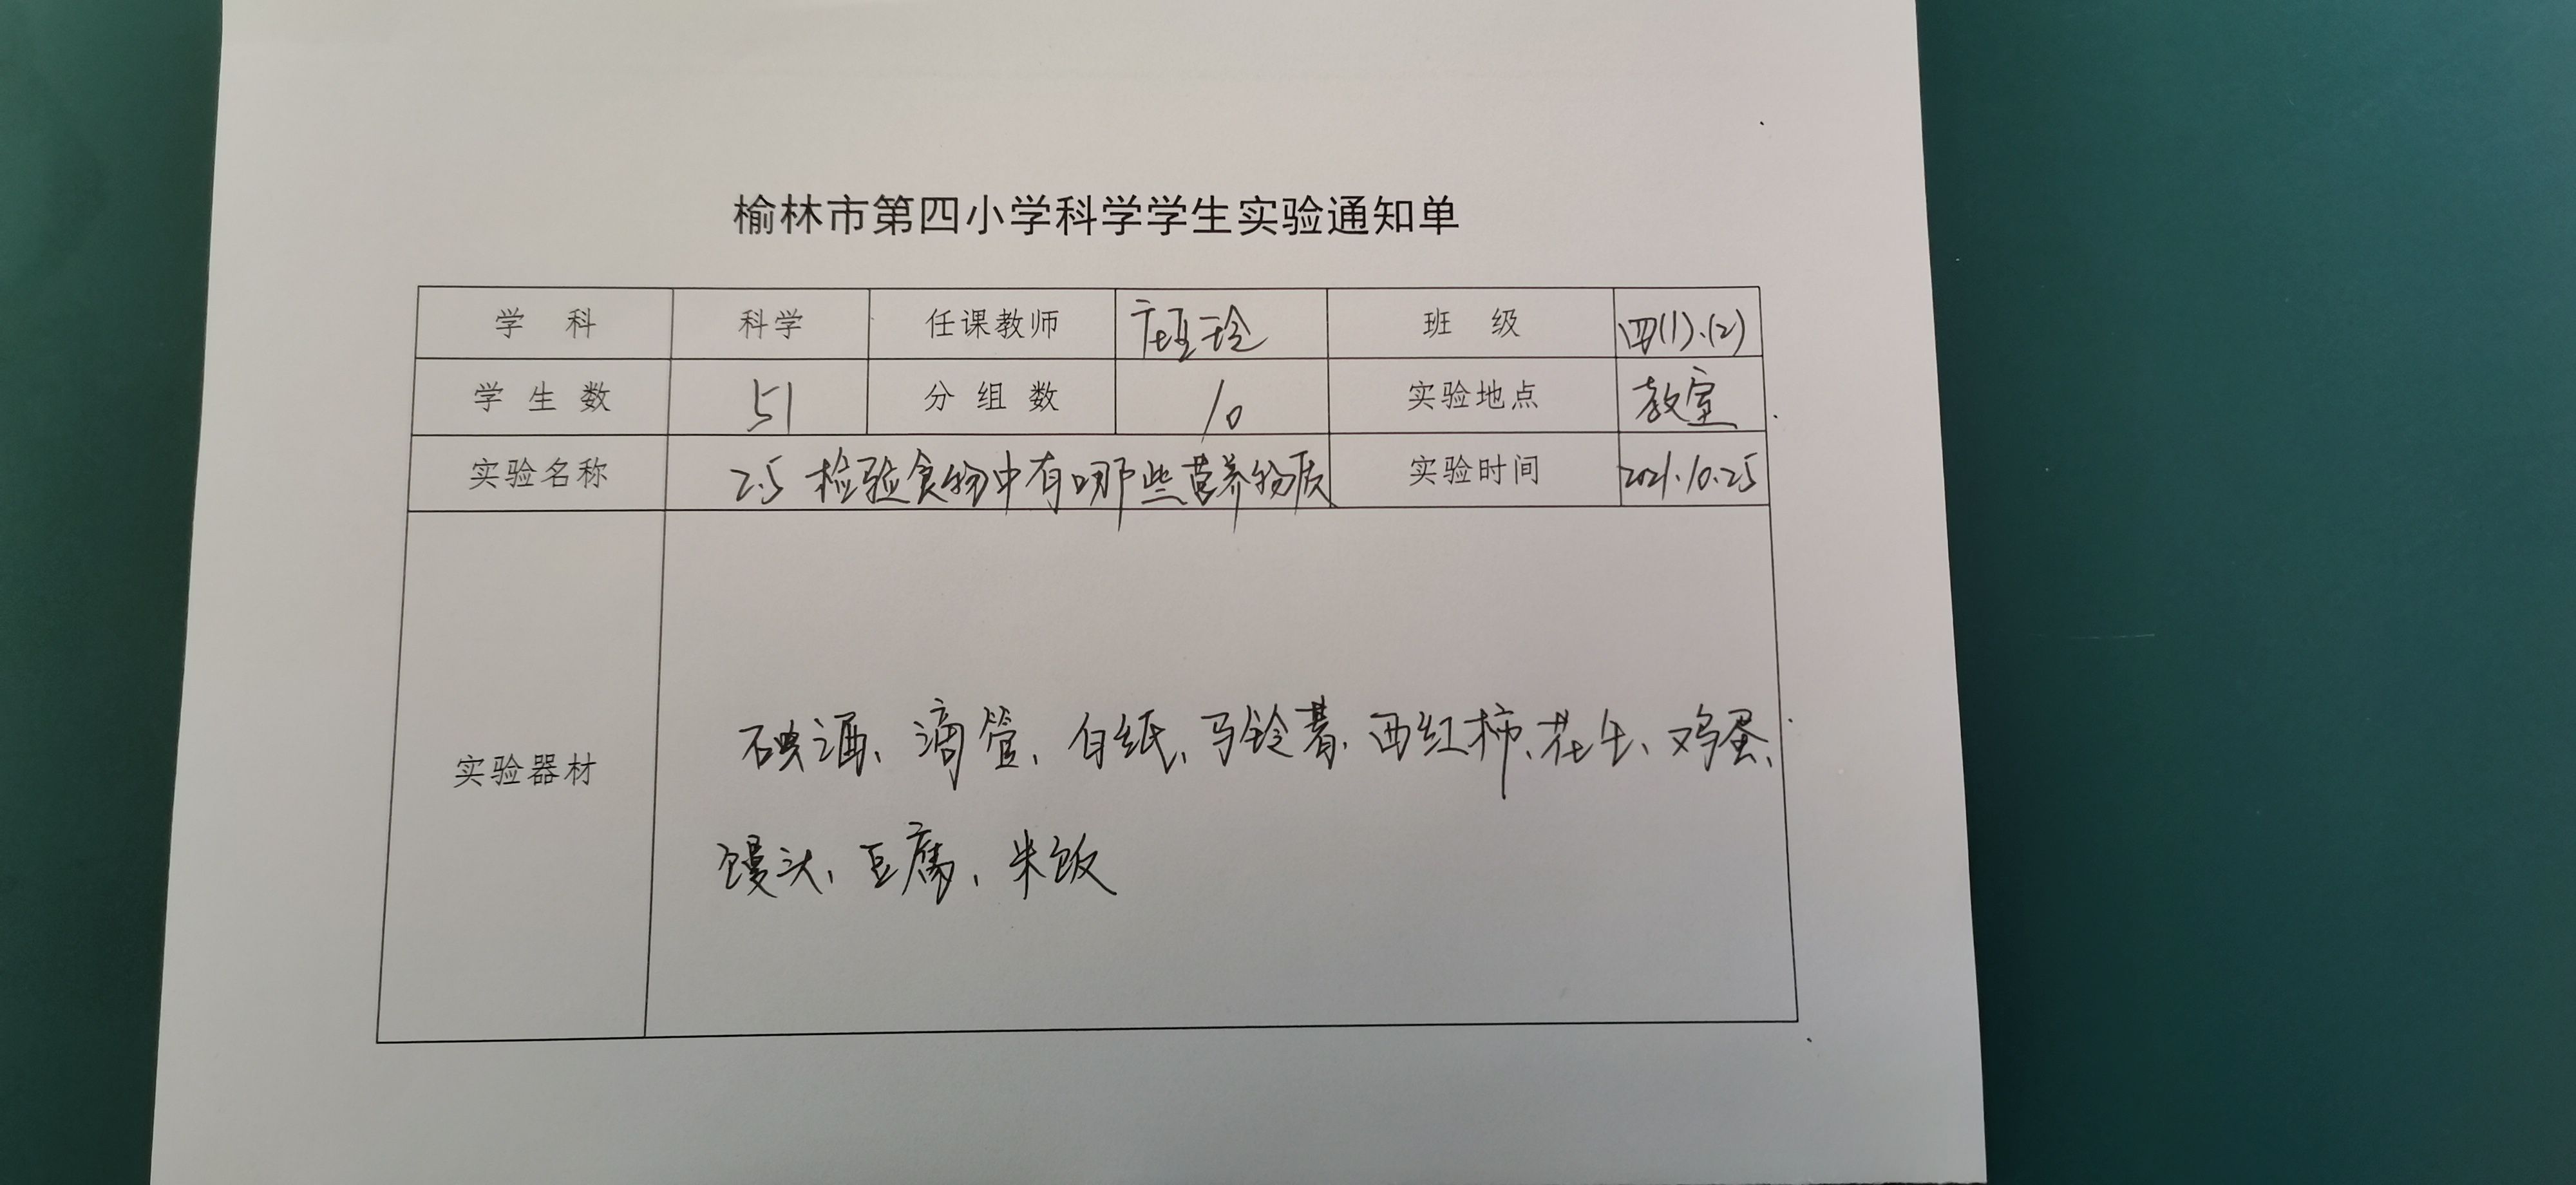 榆林市第四小学科学学生实验通知单
学 科 科学 任课教师 玲 班 级 四(1).(2)
学生数 51 分组数 10 实验地点 教室
实验名称 2.5 检验食物中有哪些营养物质 实验时间 2021.10.25
实验器材 碘酒、滴管、白纸、马铃薯、西红柿、花生、鸡蛋、
馒头、豆腐、米饭